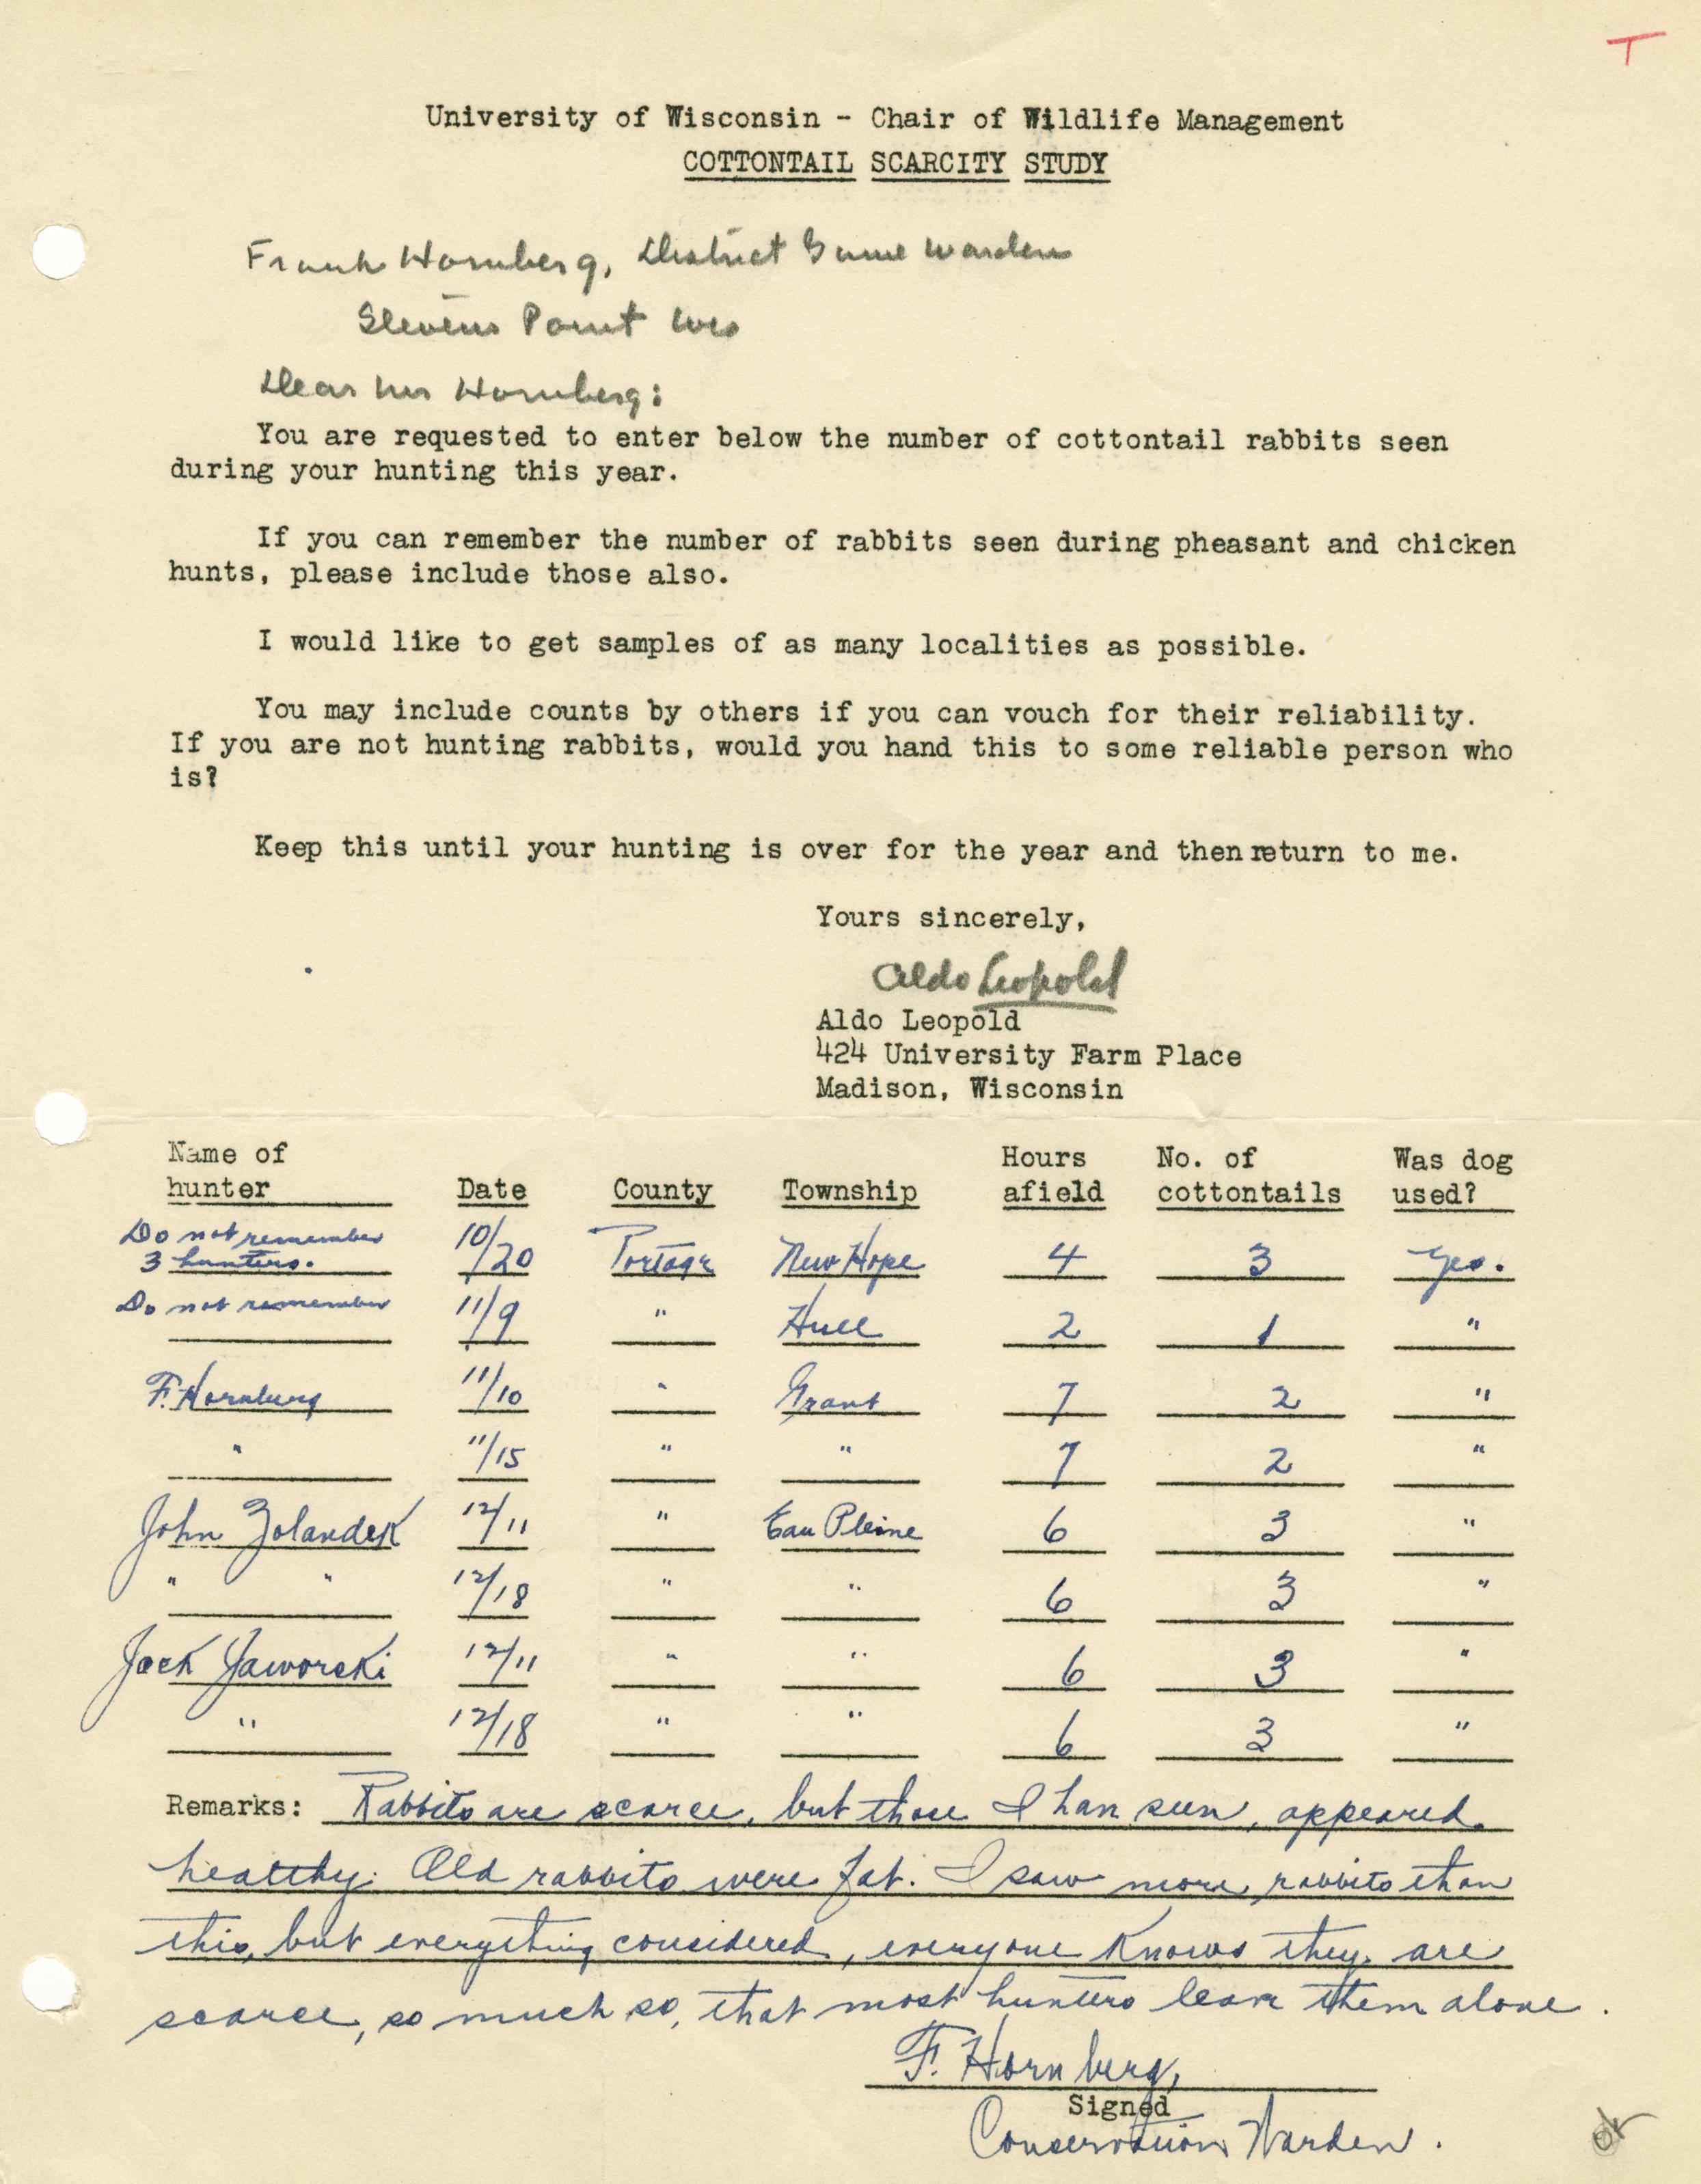 T
University of Wisconsin - Chair of Wildlife Management
COTTONTAIL SCARCITY STUDY
Frank Hornberg, District Game Warden
Stevens Point Wis
Dear Mr Hornberg:
You are requested to enter below the number of cottontail rabbits seen
during your hunting this year.
If you can remember the number of rabbits seen during pheasant and chicken
hunts, please include those also.
I would like to get samples of as many localities as possible.
You may include counts by others if you can vouch for their reliability.
If you are not hunting rabbits, would you hand this to some reliable person who
is?
Keep this until your hunting is over for the year and then return to me.
Yours sincerely,
Aldo Leopold
Aldo Leopold
424 University Farm Place
Madison, Wisconsin
Name of hunter Date County Township Hours afield No. of cottontails Was dog used?
Do not remember 3 hunters. 10/20 Portage New Hope 4 3 Yes.
Do not remember 11/9 " Hull 2 1 "
F. Hornberg 11/10 " Grant 7 2 "
" 11/15 " " 7 2 "
John Zolandek 12/11 " Eau Pleine 6 3 "
" " 12/18 " " 6 3 "
Jack Jaworski 12/11 " " 6 3 "
" 12/18 " " 6 3 "
Remarks: Rabbits are scarce, but those I have seen, appeared
healthy. Old rabbits were fat. I saw more rabbits than
this, but everything considered, everyone knows they are
scarce, so much so, that most hunters leave them alone.
F. Hornberg,
Signed
Conservation Warden.